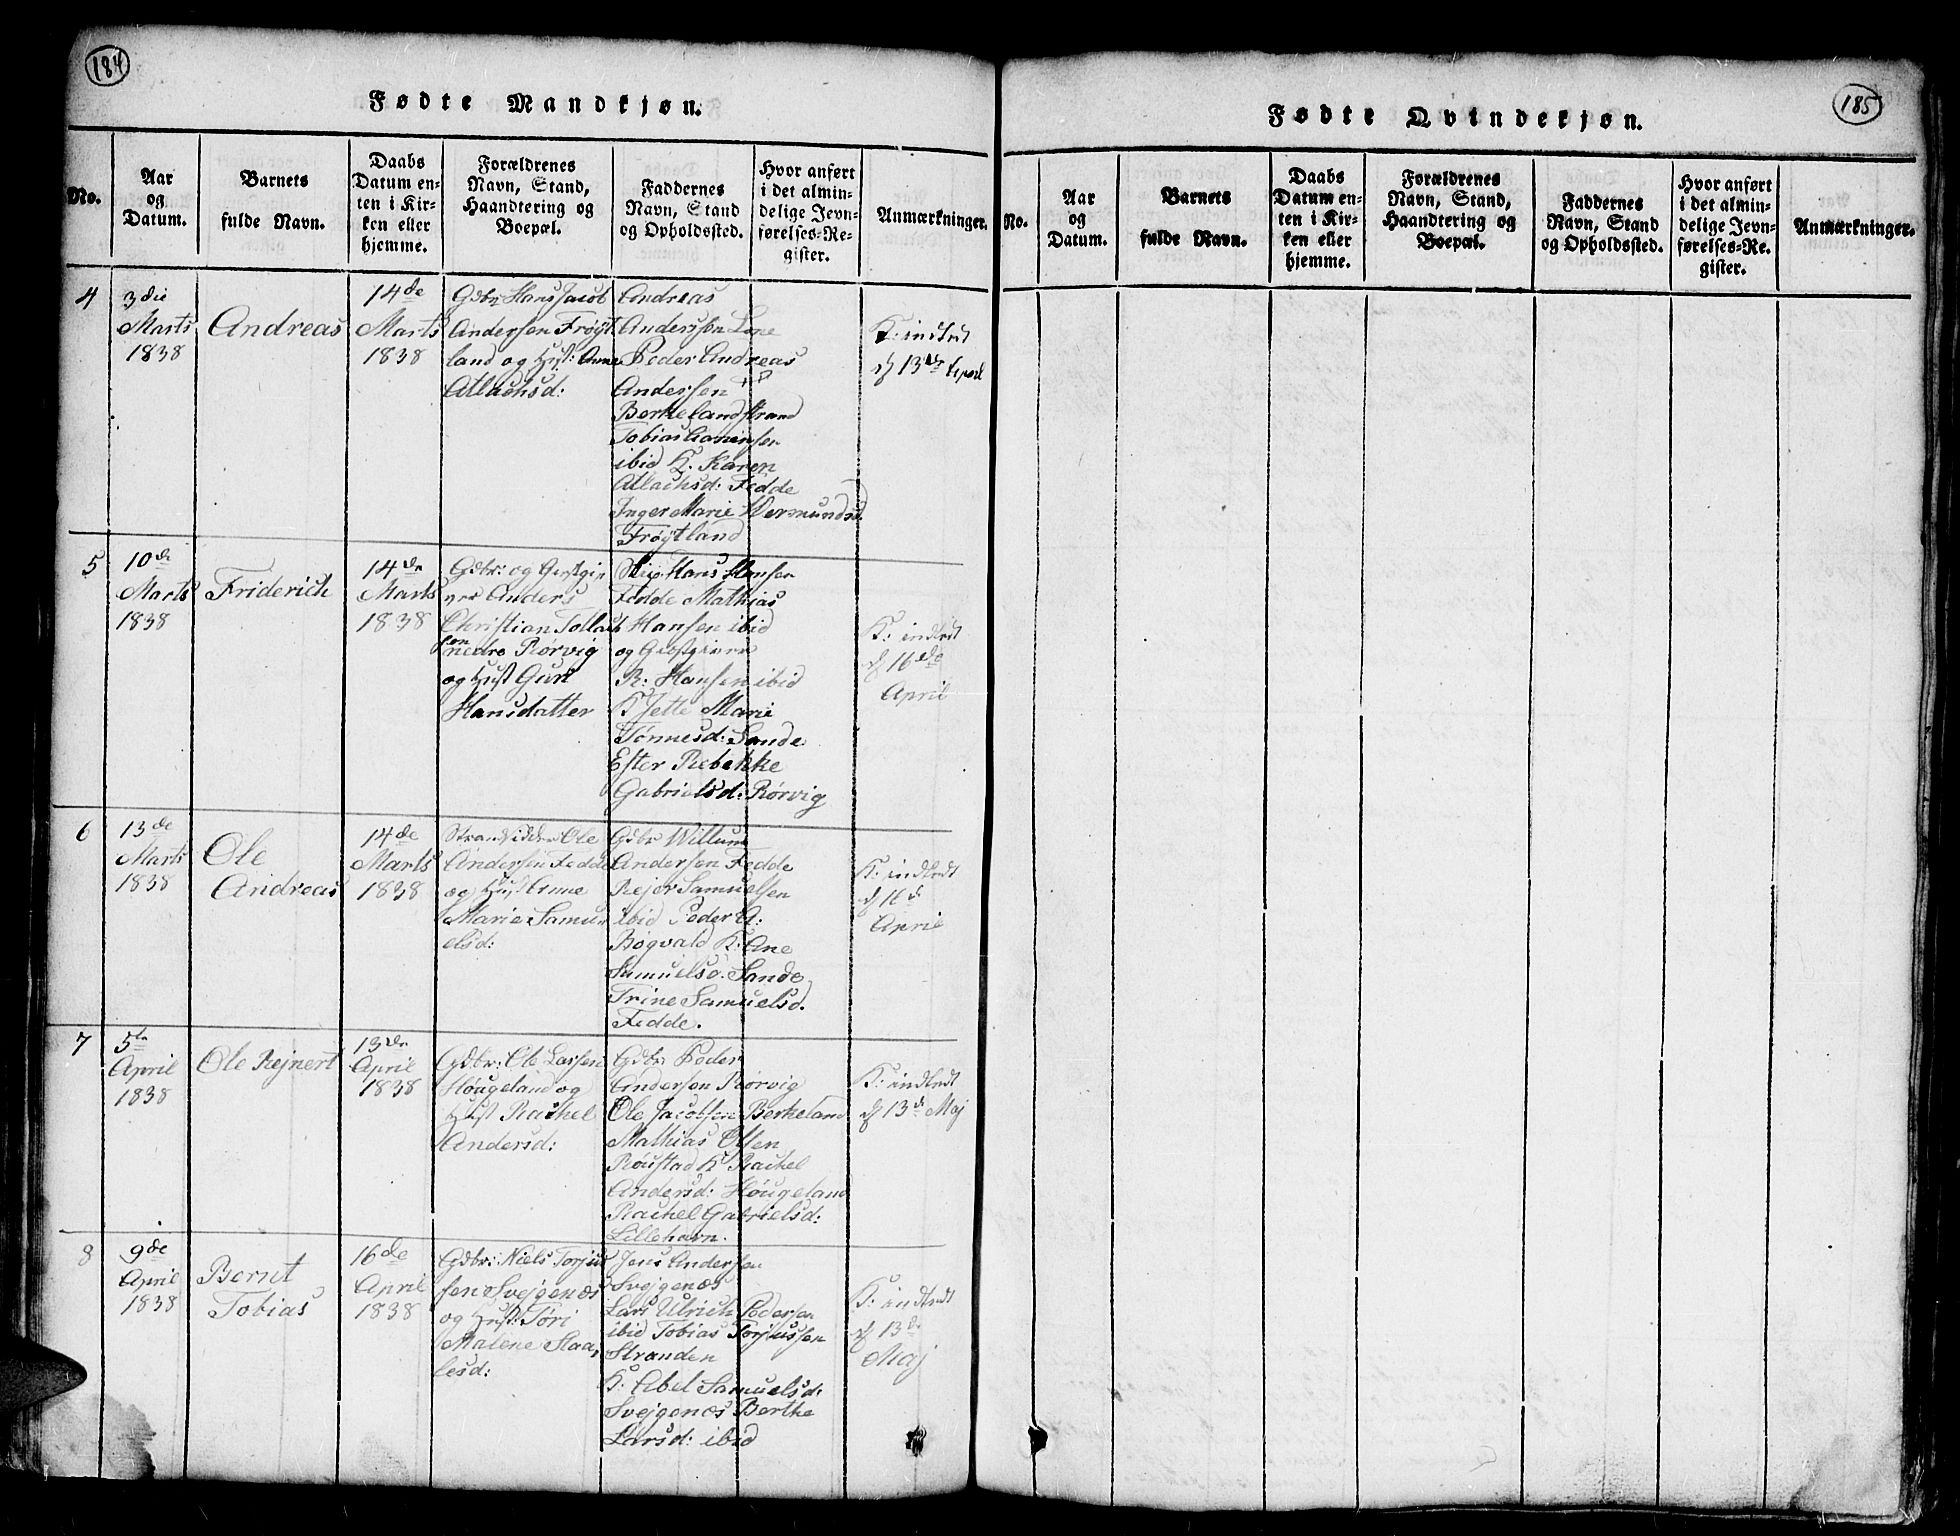 184
Fødte Mandkjøn.
No.
Aar
og
Datum.
Barnets
fulde Navn.
Daabs
Datum en-
ten i Kir-
ken eller
hjemme.
Forældrenes
Navn, Stand,
Haandtering og
Boepæl.
Faddernes
Navn, Stand
og Opholdssted.
Hvor anført
i det almin-
delige Jevn-
førelses-Re-
gister.
Anmærkninger.
4
3die
Marts
1838
Andreas
14de
Marts
1838
Gdbr Hans Jacob
Andersen Frøyt
land og Hust: Anne
Atlachsd:
Andreas
Anderssen Lone
Peder Andreas
Andersen
Berkelandstrand
Tobias
ibid K. Karen
Atlachsd: Fedde
Inger Marie Wermundsd.
Frøytland
K: indledt
d 13de April
5
10de
Marts
1838
Friderich
14de
Marts
1838
Gdbr: og Gestgiv
Anders
Christian Tollach
sen nedre Rørvig
og Hust Guri
Hansdatter
Skip. Hans Hansen
Fedde Mathias
Hansen ibid
og
R: Hansen ibid
K Jette Marie
Tønnesd: Sande
Ester Rebekke
Gabrielsd: Rørvig
K: indledt
d 16de
April
6
13de
Marts
1838
Ole
Andreas
14de
Marts
1838
Strandsidder Ole
Andersen Fedde
og Hust Anne
Marie Samu
elsd:
Gdbr Willum
Andersen Fedde
Rejer Samuelsen
ibid Peder A:
Bøgvald K: Ane
Samuelsd: Sande
Trine Samuelsd.
Fedde.
K: indledt
d 16d
April
7
5te
April
1838
Ole Rejnert
13de
April
1838
Gdbr: Ole Larsen
Høugeland og
Hust Rachel
Andersd:
Gdbr: Peder
Andersen Rørvig
Ole Jacobsen Berkeland
Mathias Olsen
Røustad K Rachel
Andersd: Høugeland
Rachel Gabrielsd:
Lillehavn.
K: indledt
d 13d Maj
8
9de
April
1838
Bernt
Tobias
16de
April
1838
Gdbr: Niels Torjus
sen Svejgenæs
og Hust: Tøri
Malene Staa,
lesd:
Jens Andersen
Svejgenæs
Lars Ulrich Pedersen
ibid Tobias Torjussen
Stranden
K: Abel Samuelsd:
Svejgenæs Berthe
Larsd: ibid
K: indledt
d 13de
Maj
185
Fødte Qvindekjøn.
No.
Aar
og
Datum.
Barnets
fulde Navn.
Daabs
Datum en-
ten i Kir-
ken eller
hjemme.
Forældrenes
Navn, Stand,
Haandtering og
Boepæl.
Faddernes
Navn, Stand
og Opholdssted.
Hvor anført
i det almin-
delige Jevn-
førelses-Re-
gister.
Anmærkninger.